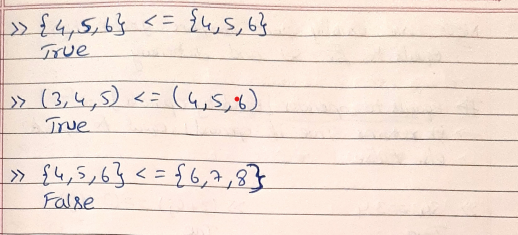 >> {4,5,6} <= {4,5,6}
True
>> (3,4,5) <= (4,5,6)
True
>> {4,5,6} <= {6,7,8}
False